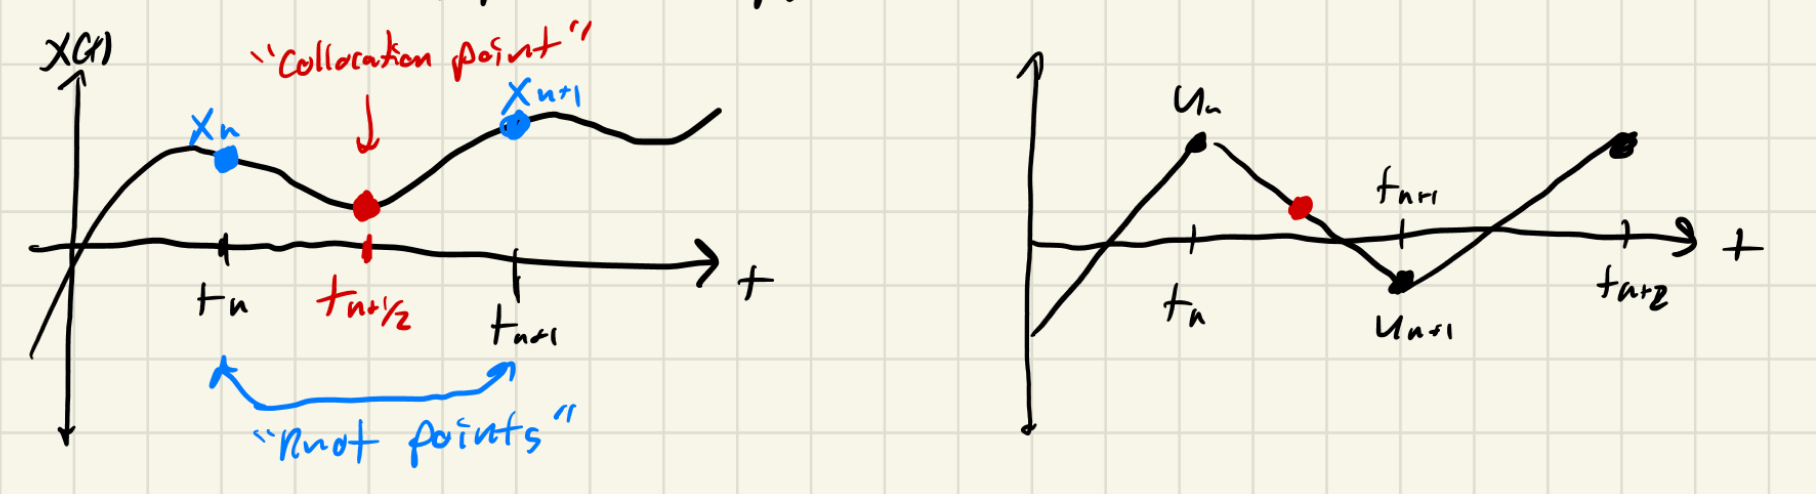 x(t)
"Collocation point"
xn
xn+1
tn
tn+1/2
tn+1
"Knot points"
t
un
tn+1
tn
un+1
tn+2
t